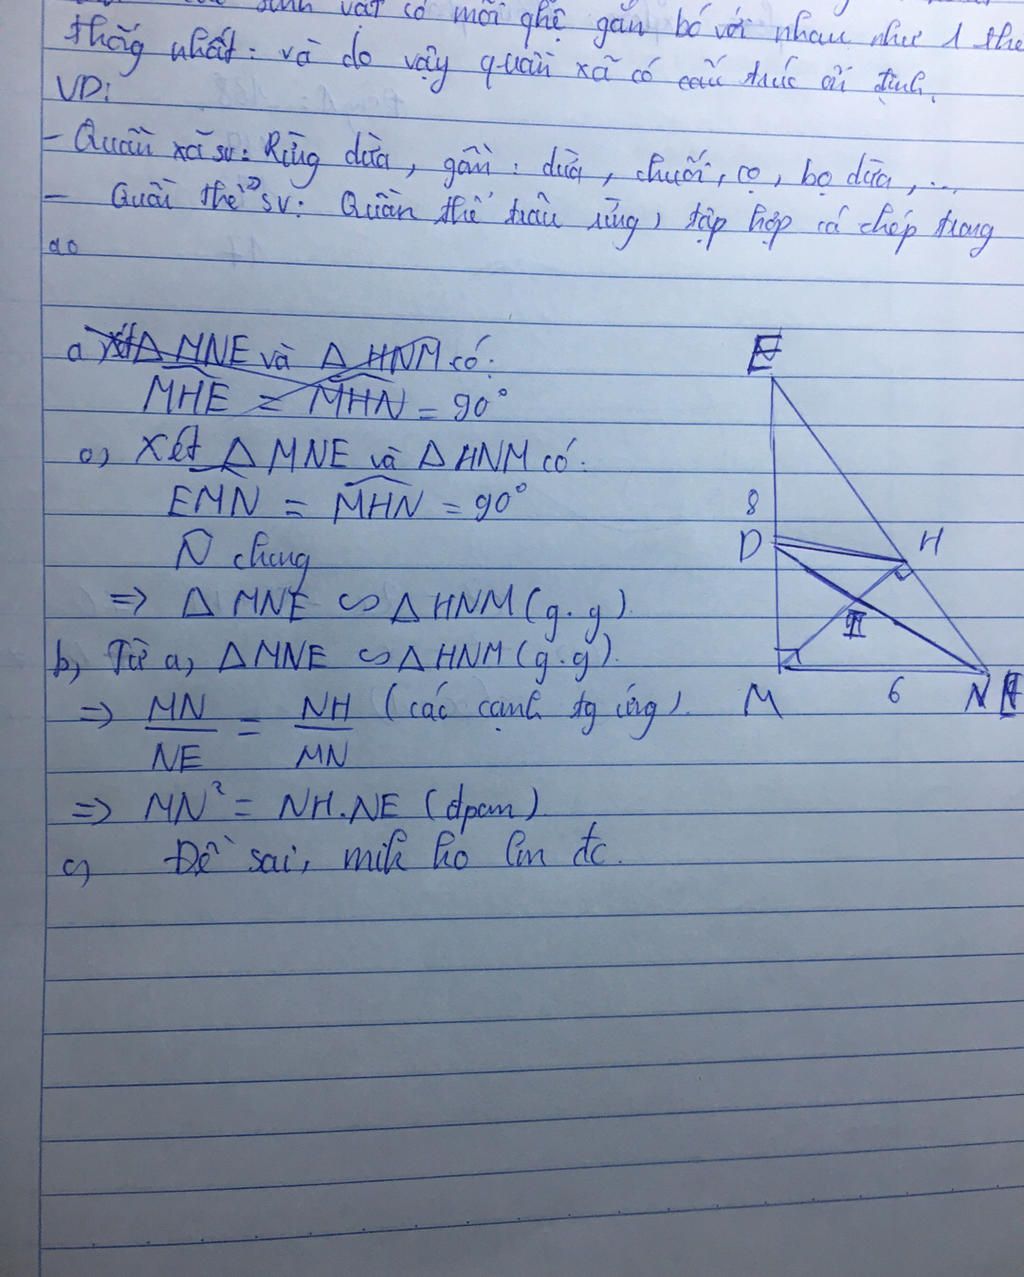 sinh vật có mối qhệ gắn bó với nhau như 1 thể
thống nhất: và do vậy quần xã có cấu trúc ổn định.
VD:
- Quần xã sv: Rừng dừa, gồm: dừa, chuối, cọ, bọ dừa, ...
- Quần thể sv: Quần thể trâu rừng, tập hợp cá chép trong
ao
a) Xét Δ MNE và Δ HNM có:
MHE = MHN = 90°
a) Xét Δ MNE và Δ HNM có:
EMN = MHN = 90°
N chung
=> Δ MNE ∽ Δ HNM (g.g)
b, Từ a, Δ MNE ∽ Δ HNM (g.g).
=> MN/NE = NH/MN (các cạnh tg ứng).
=> MN² = NH.NE (đpcm)
c) Đề sai, mik ko lm đc.
E
8
D
H
I
M
6
N